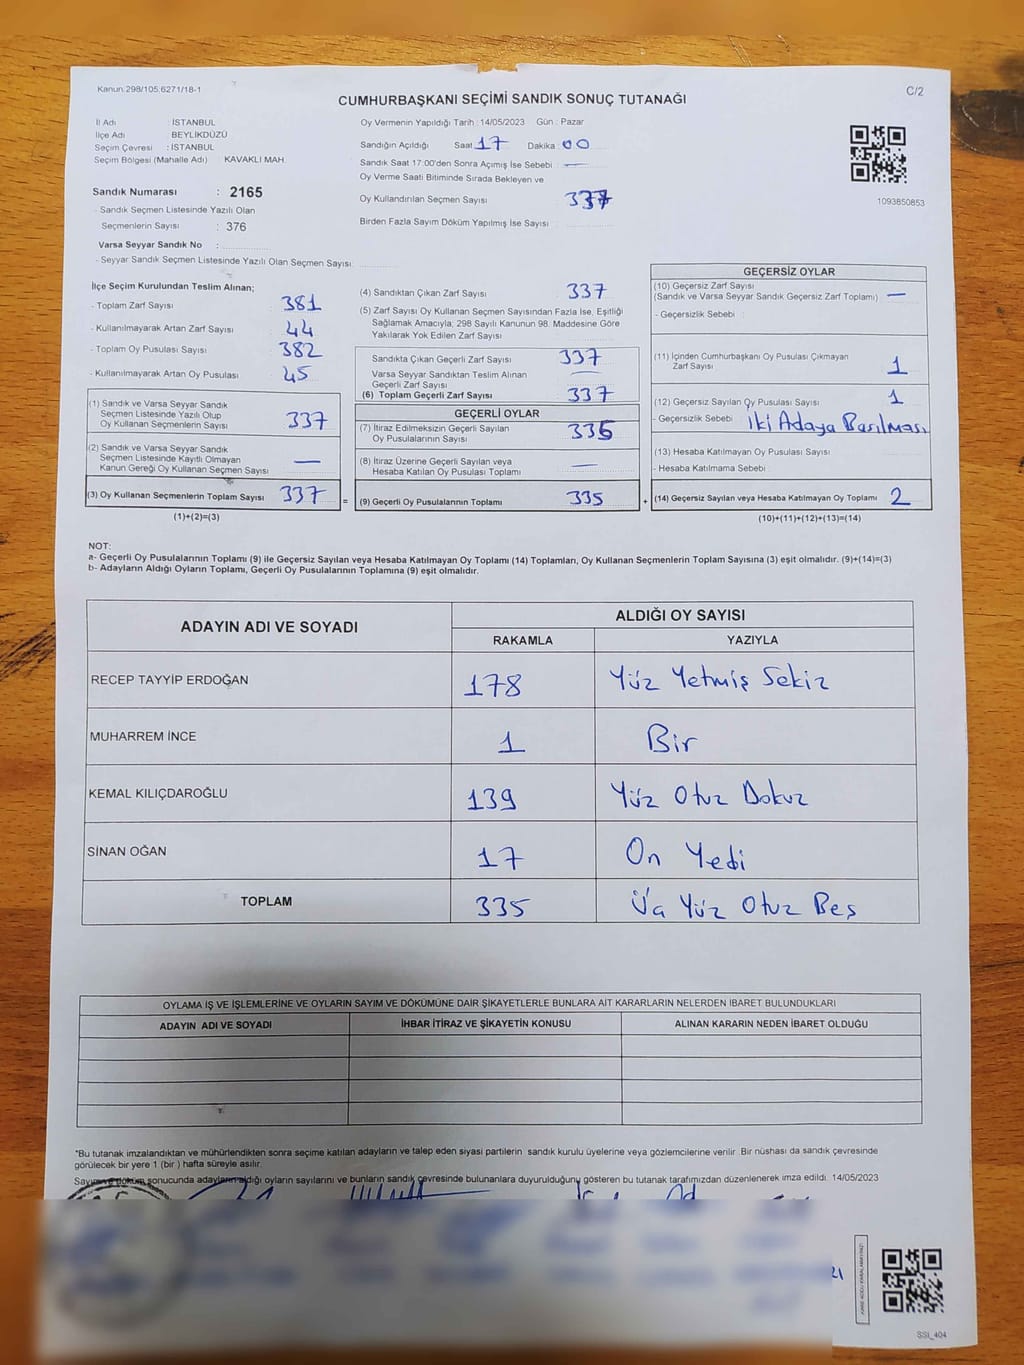 Kanun.298/105.6271/18-1
CUMHURBAŞKANI SEÇİMİ SANDIK SONUÇ TUTANAĞI
C/2
İl Adı : İSTANBUL
İlçe Adı : BEYLİKDÜZÜ
Seçim Çevresi : İSTANBUL
Seçim Bölgesi (Mahalle Adı) : KAVAKLI MAH.
Sandık Numarası : 2165
- Sandık Seçmen Listesinde Yazılı Olan
Seçmenlerin Sayısı : 376
Varsa Seyyar Sandık No :
- Seyyar Sandık Seçmen Listesinde Yazılı Olan Seçmen Sayısı:
Oy Vermenin Yapıldığı Tarih : 14/05/2023 Gün : Pazar
Sandığın Açıldığı Saat 17 Dakika : 00
Sandık Saat 17:00'den Sonra Açımış İse Sebebi : —
Oy Verme Saati Bitiminde Sırada Bekleyen ve
Oy Kullandırılan Seçmen Sayısı : 337
Birden Fazla Sayım Döküm Yapılmış İse Sayısı :
1093850853
İlçe Seçim Kurulundan Teslim Alınan;
- Toplam Zarf Sayısı : 381
- Kullanılmayarak Artan Zarf Sayısı : 44
- Toplam Oy Pusulası Sayısı : 382
- Kullanılmayarak Artan Oy Pusulası : 45
(1) Sandık ve Varsa Seyyar Sandık
Seçmen Listesinde Yazılı Olup
Oy Kullanan Seçmenlerin Sayısı : 337
(2) Sandık ve Varsa Seyyar Sandık
Seçmen Listesinde Kayıtlı Olmayan
Kanun Gereği Oy Kullanan Seçmen Sayısı : —
(3) Oy Kullanan Seçmenlerin Toplam Sayısı : 337 =
(1)+(2)=(3)
(4) Sandıktan Çıkan Zarf Sayısı : 337
(5) Zarf Sayısı Oy Kullanan Seçmen Sayısından Fazla İse, Eşitliği
Sağlamak Amacıyla; 298 Sayılı Kanunun 98. Maddesine Göre
Yakılarak Yok Edilen Zarf Sayısı :
Sandıkta Çıkan Geçerli Zarf Sayısı : 337
Varsa Seyyar Sandıktan Teslim Alınan
Geçerli Zarf Sayısı : —
(6) Toplam Geçerli Zarf Sayısı : 337
GEÇERLİ OYLAR
(7) İtiraz Edilmeksizin Geçerli Sayılan
Oy Pusulalarının Sayısı : 335
(8) İtiraz Üzerine Geçerli Sayılan veya
Hesaba Katılan Oy Pusulası Toplamı : —
(9) Geçerli Oy Pusulalarının Toplamı : 335 +
GEÇERSİZ OYLAR
(10) Geçersiz Zarf Sayısı
(Sandık ve Varsa Seyyar Sandık Geçersiz Zarf Toplamı) : —
- Geçersizlik Sebebi :
(11) İçinden Cumhurbaşkanı Oy Pusulası Çıkmayan
Zarf Sayısı : 1
(12) Geçersiz Sayılan Oy Pusulası Sayısı : 1
- Geçersizlik Sebebi : İki Adaya Basılması
(13) Hesaba Katılmayan Oy Pusulası Sayısı :
- Hesaba Katılmama Sebebi :
(14) Geçersiz Sayılan veya Hesaba Katılmayan Oy Toplamı : 2
(10)+(11)+(12)+(13)=(14)
NOT:
a- Geçerli Oy Pusulalarının Toplamı (9) ile Geçersiz Sayılan veya Hesaba Katılmayan Oy Toplamı (14) Toplamları, Oy Kullanan Seçmenlerin Toplam Sayısına (3) eşit olmalıdır. (9)+(14)=(3)
b- Adayların Aldığı Oyların Toplamı, Geçerli Oy Pusulalarının Toplamına (9) eşit olmalıdır.
ADAYIN ADI VE SOYADI
ALDIĞI OY SAYISI
RAKAMLA YAZIYLA
RECEP TAYYİP ERDOĞAN 178 Yüz Yetmiş Sekiz
MUHARREM İNCE 1 Bir
KEMAL KILIÇDAROĞLU 139 Yüz Otuz Dokuz
SİNAN OĞAN 17 On Yedi
TOPLAM 335 Üç Yüz Otuz Beş
OYLAMA İŞ VE İŞLEMLERİNE VE OYLARIN SAYIM VE DÖKÜMÜNE DAİR ŞİKAYETLERLE BUNLARA AİT KARARLARIN NELERDEN İBARET BULUNDUKLARI
ADAYIN ADI VE SOYADI İHBAR İTİRAZ VE ŞİKAYETİN KONUSU ALINAN KARARIN NEDEN İBARET OLDUĞU
*Bu tutanak imzalandıktan ve mühürlendikten sonra seçime katılan adayların ve talep eden siyasi partilerin sandık kurulu üyelerine veya gözlemcilerine verilir. Bir nüshası da sandık çevresinde
görülecek bir yere 1 (bir ) hafta süreyle asılır.
Sayım ve döküm sonucunda adayların aldığı oyların sayılarını ve bunların sandık çevresinde bulunanlara duyurulduğunu gösteren bu tutanak tarafımızdan düzenlenerek imza edildi. 14/05/2023
SSI_404